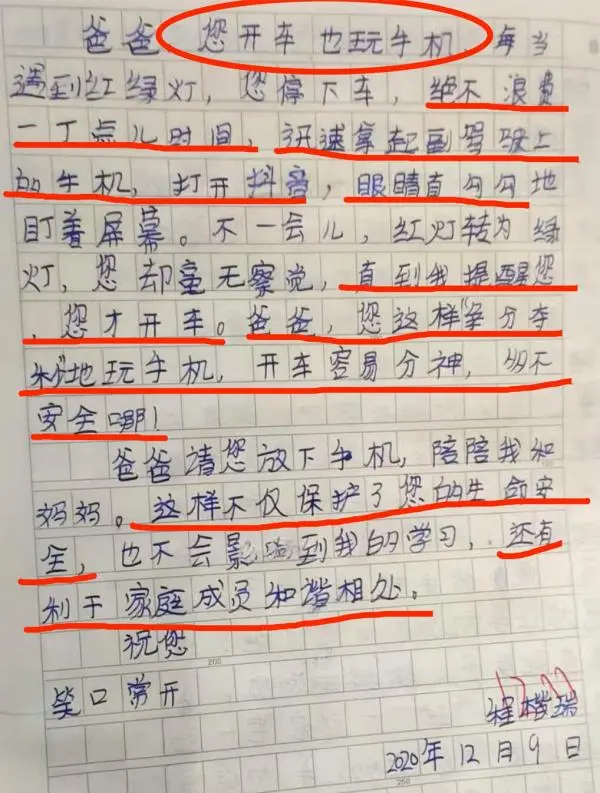 爸爸,您开车也玩手机,每当
遇到红绿灯,您停下车,绝不浪费
一丁点儿时间,迅速拿起副驾驶上
的手机,打开抖音,眼睛直勾勾地
盯着屏幕。不一会儿,红灯转为绿
灯,您却毫无察觉,直到我提醒您
,您才开车。爸爸,您这样“争分夺
秒”地玩手机,开车容易分神,多不
安全哪!
爸爸请您放下手机,陪陪我和
妈妈。这样不仅保护了您的生命安
全,也不会影响到我的学习,还有
利于家庭成员和谐相处。
祝您
200
笑口常开
2020年12月9日